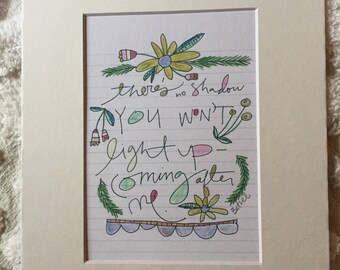 there's no shadow
YOU WON'T
light up -
coming after
me.